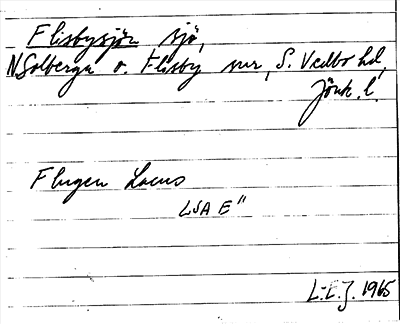 Flisbysjön sjö,
N Solberga o. Flisby snr, S. Vedbo hd,
Jönk. l.
Flugen Lacus
LSA E"
L.E.J. 1965